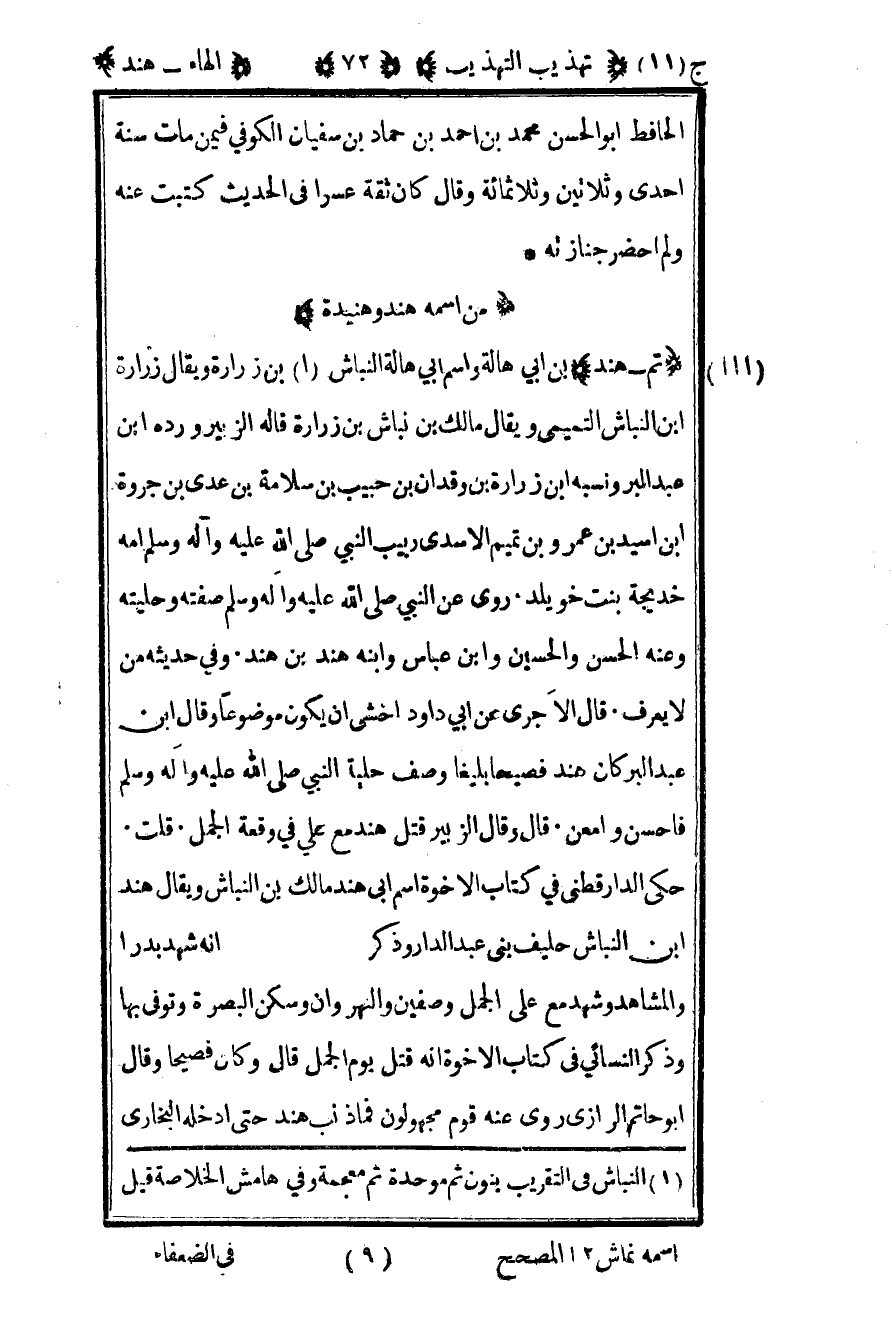 ج (١١) ﴿ تهذيب التهذيب ﴾ ﴿ ٧٢ ﴾ ﴿ الهاء ـ هند ﴾
الحافظ ابوالحسن محمد بن احمد بن حماد بن سفيان الكوفي فيمن مات سنة
احدى وثلاثين وثلاثمائة وقال كان ثقة عسرا فى الحديث كتبت عنه
ولم احضر جنازته *
﴿ من اسمه هند وهنيدة ﴾
(١١١) ﴿ تم ـ هند ﴾ بن ابي هالة واسم ابي هالة النباش (١) بن زرارة ويقال زرارة
ابن النباش التميمى ويقال مالك بن نباش بن زرارة قاله الزبير ورده ابن
عبدالبر ونسبه ابن زرارة بن وقدان بن حبيب بن سلامة بن عدى بن جروة
ابن اسيد بن عمرو بن تميم الاسدى ربيب النبي صلى الله عليه وآله وسلم امه
خديجة بنت خويلد . روى عن النبي صلى الله عليه وآله وسلم صفته وحليته
وعنه الحسن والحسين وابن عباس وابنه هند بن هند . وفي حديثه من
لا يعرف . قال الآجرى عن ابي داود اخشى ان يكون موضوعاً وقال ابن
عبدالبر كان هند فصيحا بليغا وصف حلية النبي صلى الله عليه وآله وسلم
فاحسن وامعن . قال وقال الزبير قتل هند مع علي في وقعة الجمل . قلت .
حكى الدارقطنى في كتاب الاخوة اسم ابى هند مالك بن النباش ويقال هند
ابن النباش حليف بنى عبدالدار وذكر انه شهد بدرا
والمشاهد وشهد مع على الجمل وصفين والنهروان وسكن البصرة وتوفى بها
وذكر النسائي فى كتاب الاخوة انه قتل يوم الجمل قال وكان فصيحا وقال
ابو حاتم الرازى روى عنه قوم مجهولون فماذنب هند حتى ادخله البخارى
(١) النباش فى التقريب بنون ثم موحدة ثم معجمة وفي هامش الخلاصة قيل
اسمه نماش ١٢ المصحح (٩) في الضعفاء